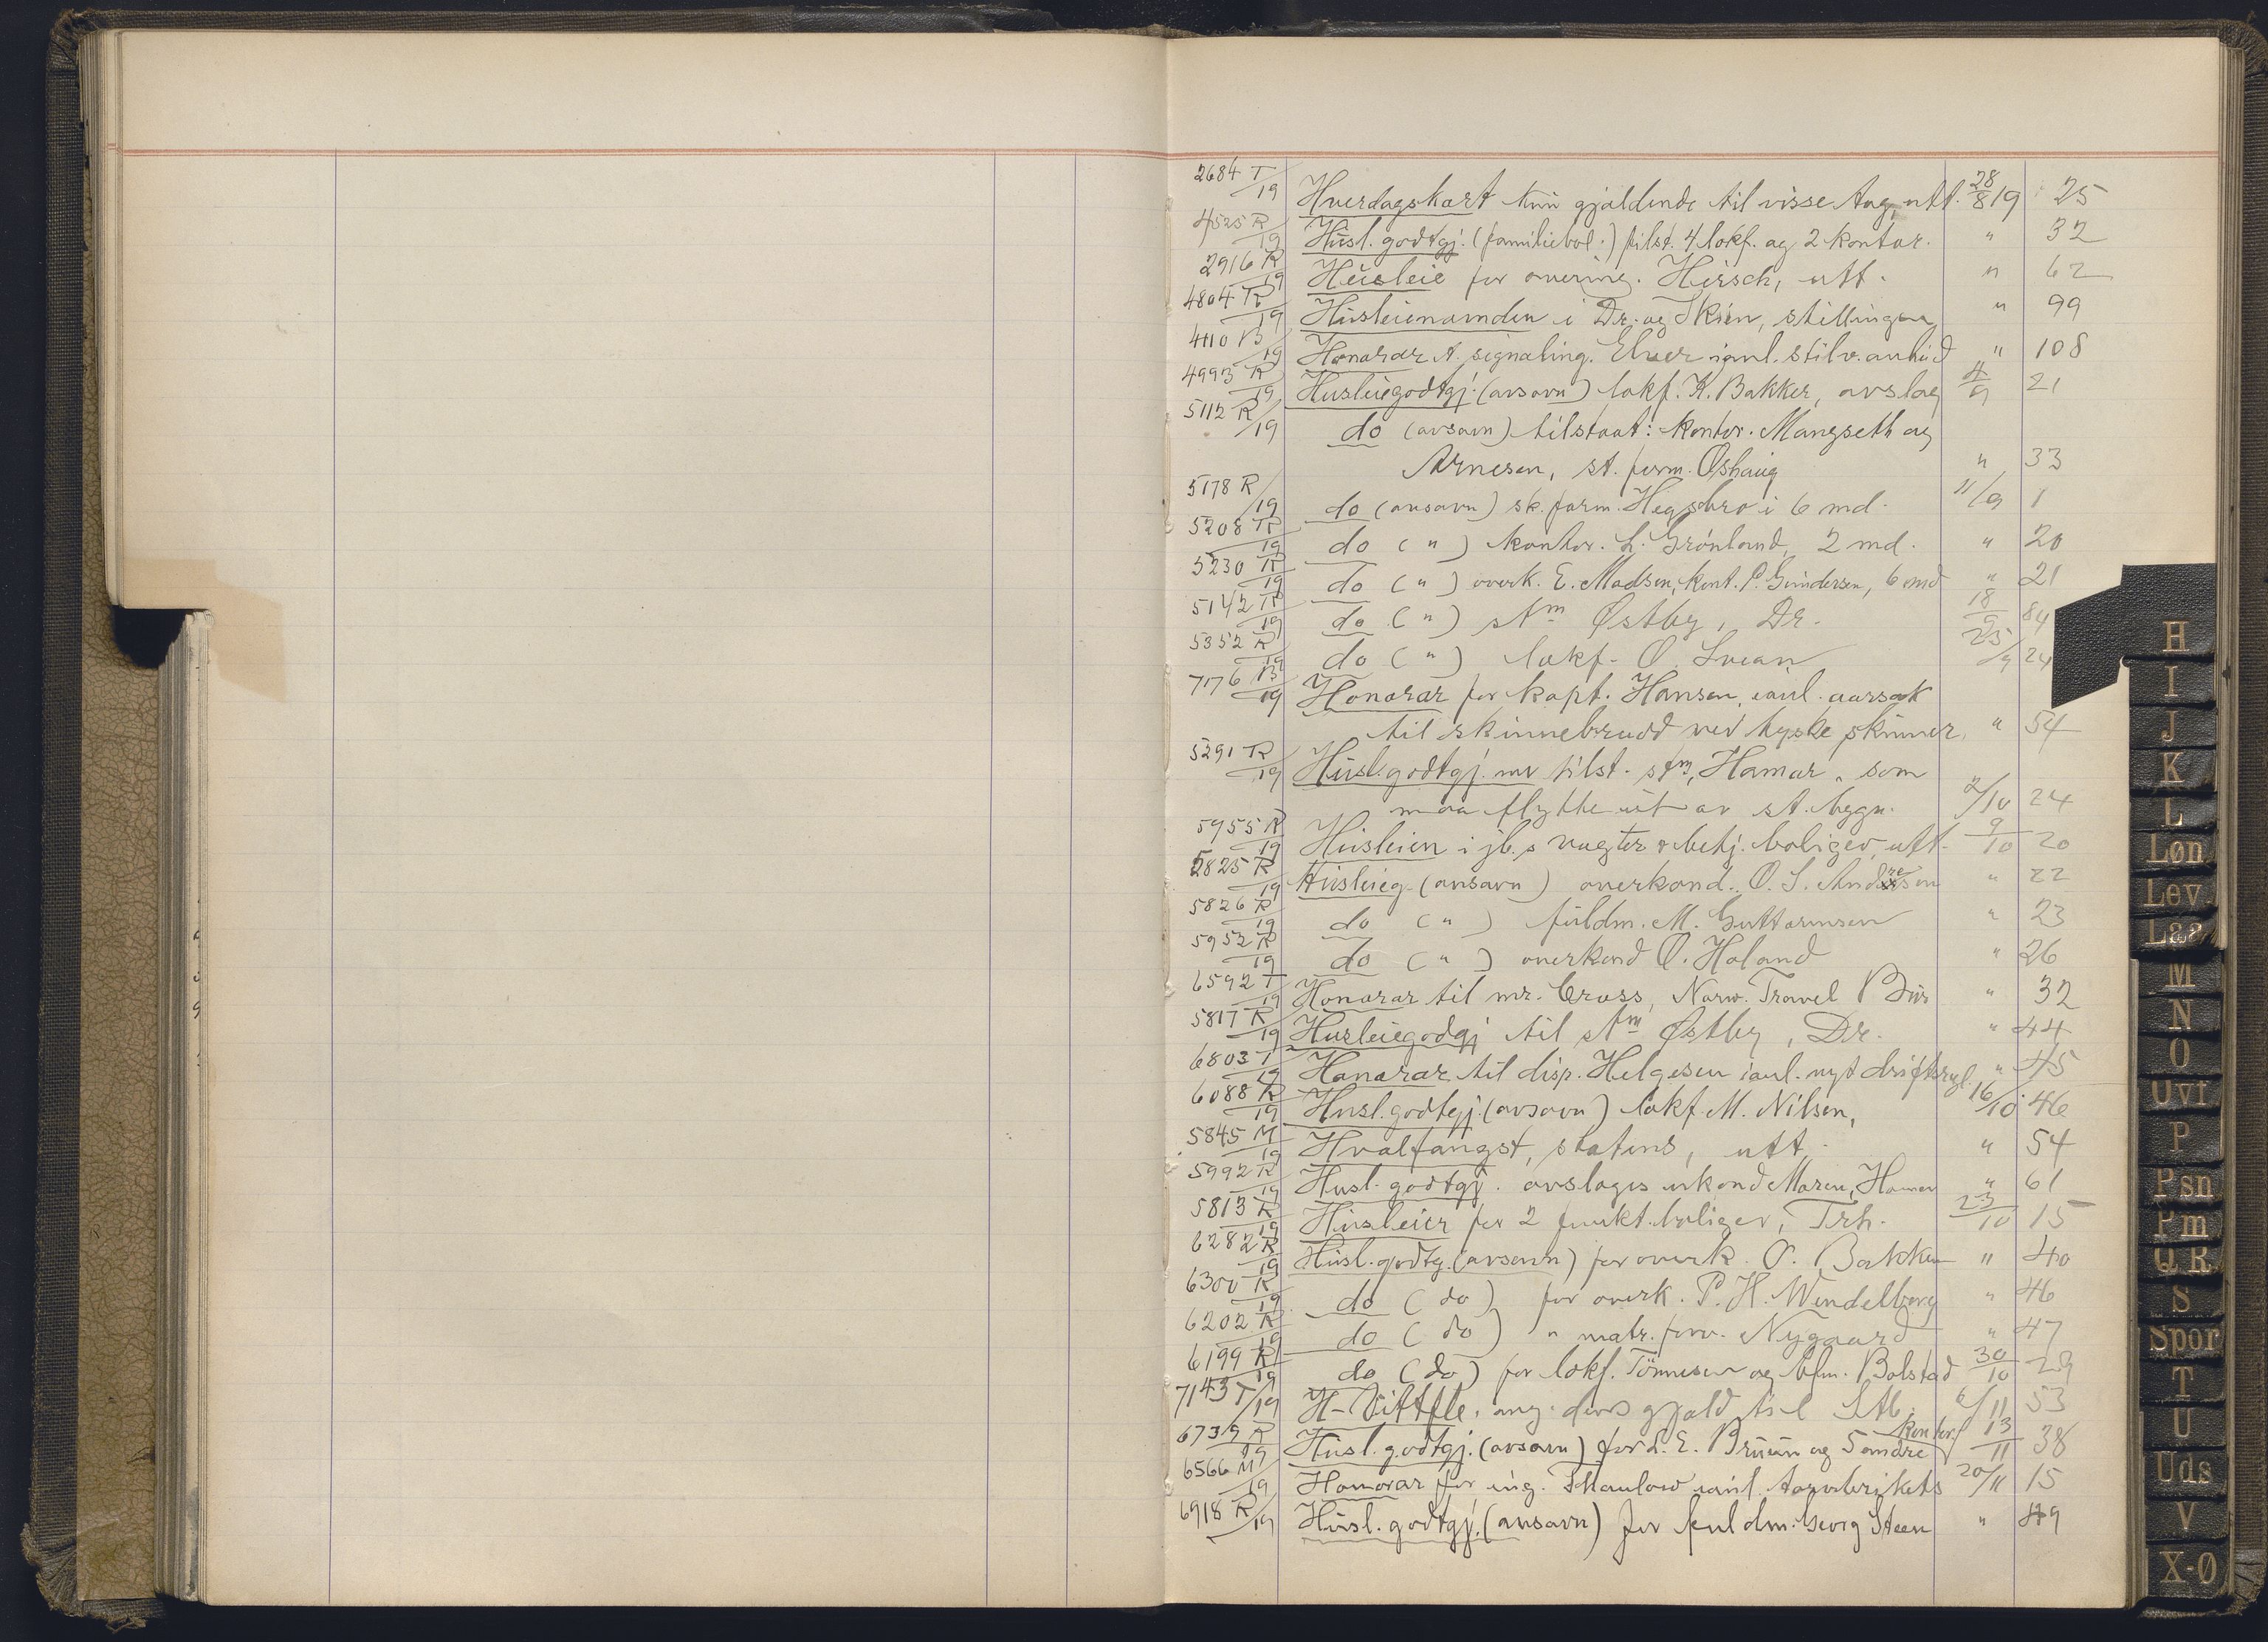 2684 T/19 Hverdagskort kun gjældende til visse tog, utt. 28/8 19 25
4525 R/19 Husl. godtgj. (familiebol.) tilst. 4 lokf. og 2 kontor. " 32
2916 R/19 Husleie for overing. Hirsch, utt. " 62
4804 R/19 Husleienævnden i Dr. og Skien, stillingen " 99
4110 B/19 Honorar t. signaling. Elver ianl. stilv. anbud " 108
4993 R/19 Husleiegodtgj. (avsavn) lokf. K. Bakker, avslag 4/9 21
5112 R/19 do (avsavn) tilstaat: kontor. Mangseth og
Arnesen, st. form. Øshaug " 33
5178 R/19 do (avsavn) sk. form. Hegsbro i 6 md. 11/9 1
5208 R/19 do ( " ) kontor. L. Grönland, 2 md. " 20
5230 R/19 do ( " ) overk. E. Madsen, kont. P. Gundersen, 6 md " 21
5142 R/19 do ( " ) stm Østby, Dr. 18/9 84
5352 R/19 do ( " ) lokf. O. Svean 25/9 24
7176 B/19 Honorar for kapt. Hansen, ianl. aarsak
til skinnebrudd ved tyske skinner, " 54
5291 R/19 Husl. godtgj. mv tilst. stm, Hamar, som
maa flytte ut av st. bygn. 2/10 24
5955 R/19 Husleien i jb.s vagter & betj. boliger, utt. 9/10 20
5825 R/19 Husleieg. (avsavn) overkond. O. S. Andresen " 22
5826 R/19 do ( " ) fuldm. M. Guttormsen " 23
5952 R/19 do ( " ) overkond O. Holand " 26
6592 T/19 Honorar til mr. Cross, Norw. Travel Bur " 32
5817 R/19 Husleiegodgj til stm Østby, Dr. " 44
6803 T/19 Honorar til disp. Helgesen ianl. nyt driftsregl. " 45
6088 R/19 Husl. godtgj. (avsavn) lokf. M. Nilsen, 16/10 46
5845 M/19 Hvalfangst, statens, utt. " 54
5992 R/19 Husl. godtgj. avslages u.kond Moren, Hamar " 61
5813 R/19 Husleier for 2 funkt. boliger, Trh. 23/10 15
6282 R/19 Husl. godtg. (avsavn) for overk. O. Bakken " 40
6300 R/19 do (do) for overk. P. H. Wendelborg " 46
6202 R/19 do (do) " matr. forv. Nygaard " 47
6199 R/19 do (do) for lokf. Tönnesen og bfm. Bolstad 30/10 29
7143 T/19 H- ang. deres gjæld til Stb. 6/11 53
6739 R/19 Husl. godtgj. (avsavn) for L. E. Bruun og 5 andre kontorf 13/11 38
6566 M/19 Honorar for ing. Thaulow ianl. torvbrikets 20/11 15
6918 R/19 Husl. godtgj. (avsavn) for fuldm. Georg Steen " 49
H
I
J
K
L
Løn
Lev.
Laa
M
N
O
Uvf
P
Psn
Pm
Q R
S
Spor
T
U
Uds
V
X-Ø